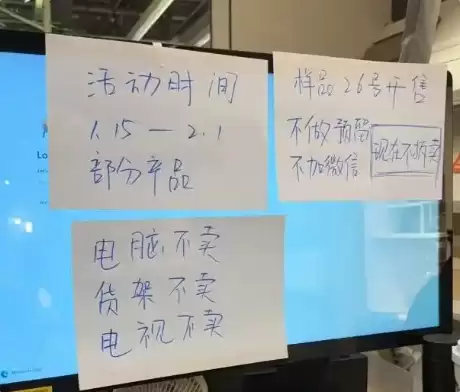 活动时间
1.15—2.1
部分产品
样品26号开售
不做预留
不加微信
现在不拆卖
电脑不卖
货架不卖
电视不卖